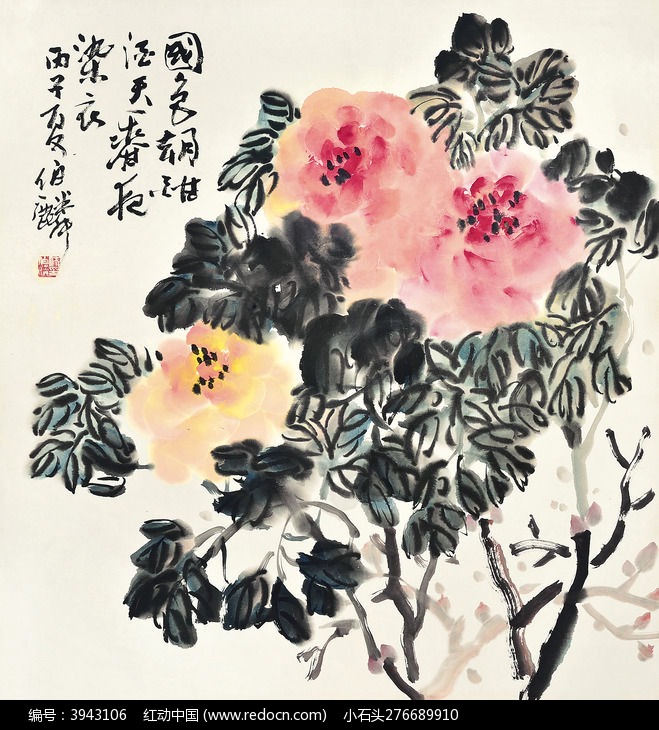 國色朝酣
酒天香夜
染衣
丙子夏伯
編号：3943106 红动中国 (www.redocn.com) 小石头276689910